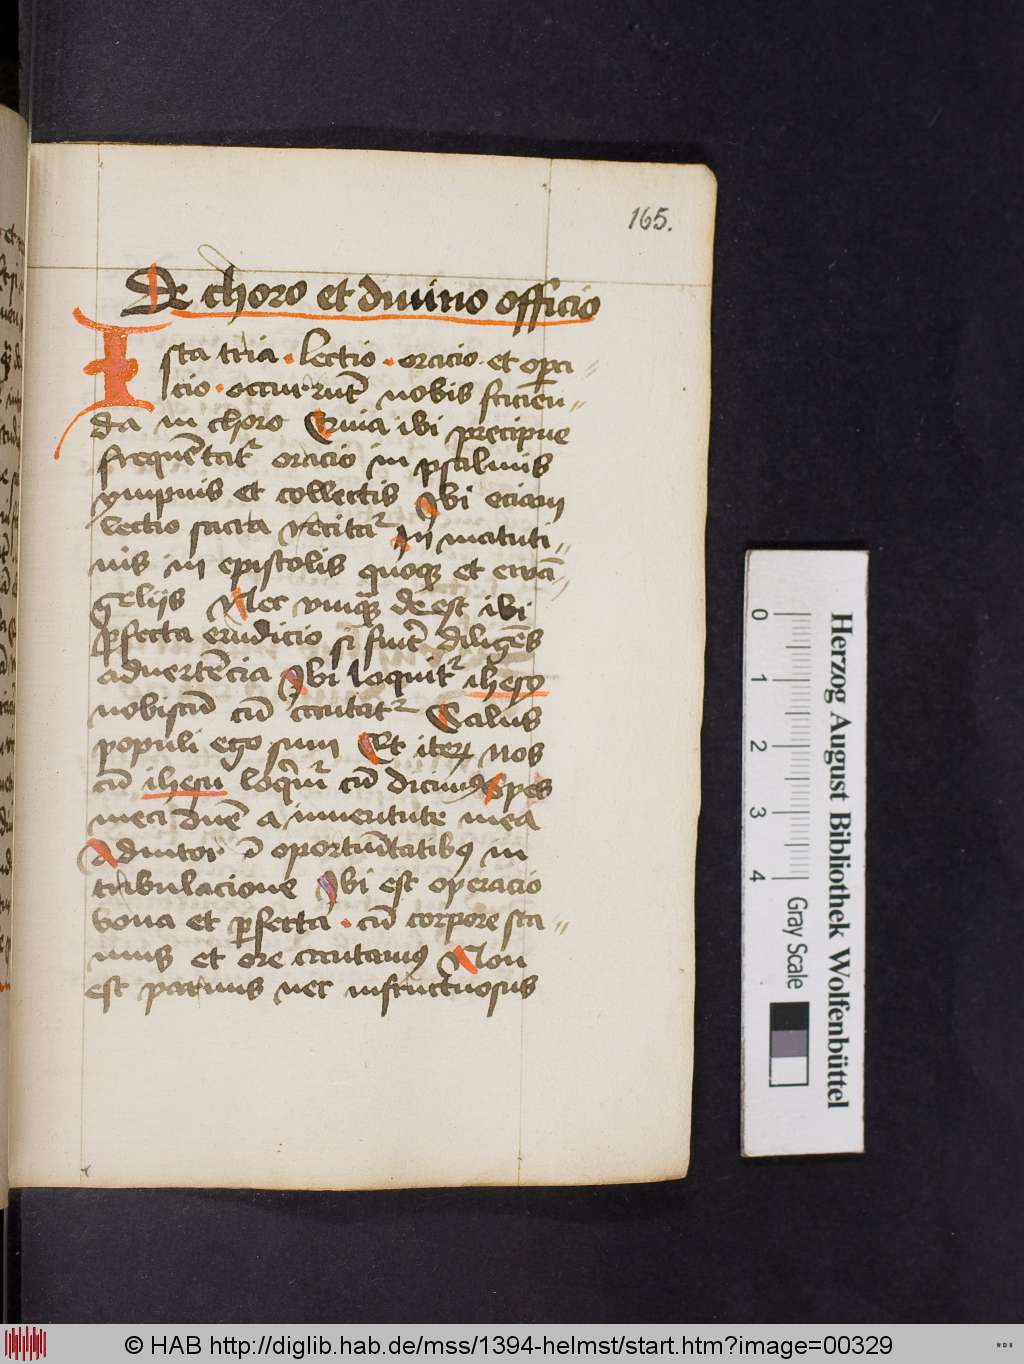 165.
De choro et diuino officio
Ista tria · lectio · oracio · et opa⸗
cio · occurrūt nobis faciēn⸗
da in choro Quia ibi precipue
frequētat᷑ oracio in psalmis
ympnis et collectis Ibi eciam
lectio sacra recitat᷑ In matuti⸗
nis in epistolis quoqꝫ et ewā⸗
gelijs Nec vniqꝫ deest ibi
ꝑfecta erudicio si fuīt diligēs
aduertēcia Ibi loquit᷑ ihesꝯ
nobiscū cū cantat᷑ Salus
populi ego sum Et iteꝝ nos
cū ihesu loqm᷑ cū dicimꝯ Spes
mea dn̄e a iuuentute mea
Adiutor ī oportūitatibꝯ in
tribulacione Ibi est operacio
bona et ꝑfecta · cū corpore sta⸗
mus et ore cantamꝯ Non
est paruus nec infructuosus
Herzog August Bibliothek Wolfenbüttel
0 1 2 3 4 Gray Scale
© HAB http://diglib.hab.de/mss/1394-helmst/start.htm?image=00329